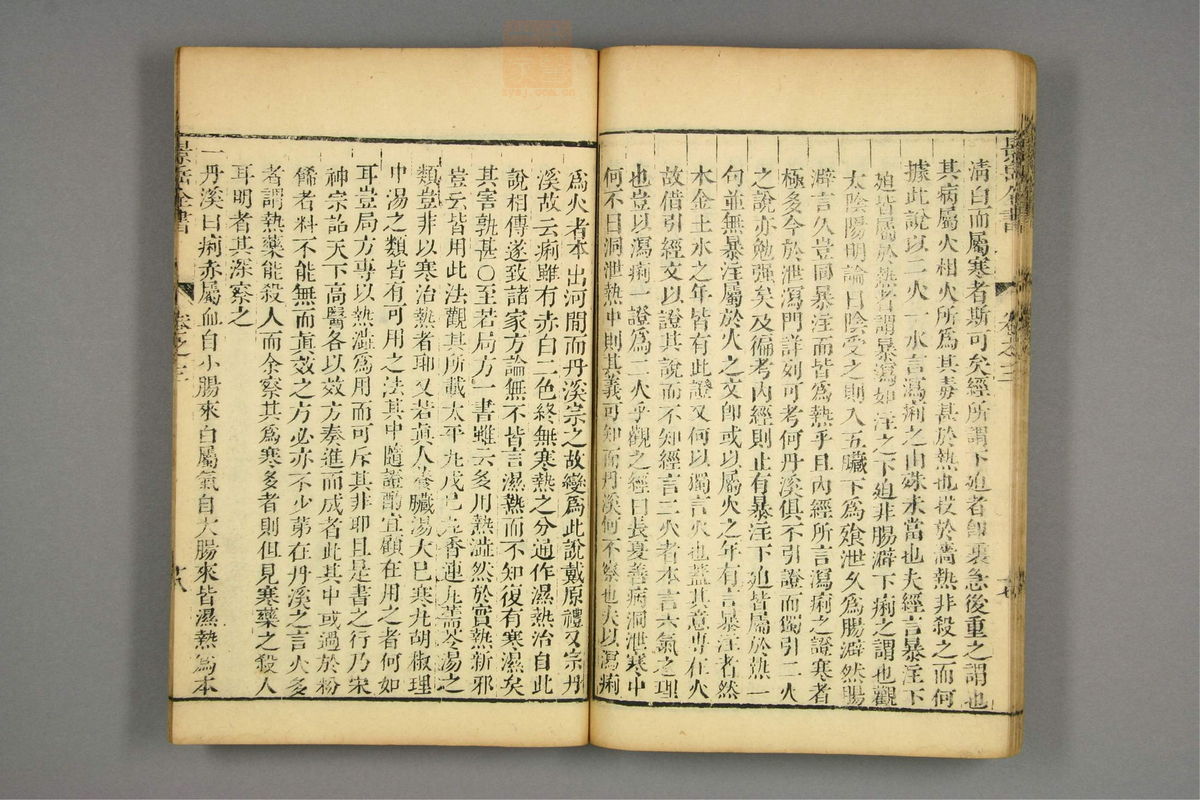 清白而屬寒者斯可矣經所謂下迫者卽裏急後重之謂也
其病屬火相火所爲其毒甚於熱也投於澬熱非殺之而何
據此說以二火一水言瀉痢之由殊未當也夫經言暴注下
迫皆屬於熱者謂暴瀉如注之下迫非腸澼下痢之謂也觀
太陰陽明論曰陰受之則入五臟下爲飱泄久爲腸澼然腸
澼言久豈同暴注而皆爲熱乎且內經所言瀉痢之證寒者
極多今於泄瀉門詳列可考何丹溪俱不引證而獨引二火
之說亦勉强矣及徧考內經則止有暴注下迫皆屬於熱一
句並無暴注屬於火之文卽或以屬火之年有言暴注者然
木金土水之年皆有此證又何以獨言火也蓋其意專在火
故借引經文以證其說而不知經言二火者本言六氣之理
也豈以瀉痢一證爲二火乎觀之經曰長夏善病洞泄寒中
何不曰洞泄熱中則其義可知而丹溪何不察也夫以瀉痢
爲火者本出河間而丹溪宗之故變爲此說戴原禮又宗丹
溪故云痢雖有赤白二色終無寒熱之分通作濕熱治自此
說相傳遂致諸家方論無不皆言濕熱而不知復有寒濕矣
其害孰甚〇至若局方一書雖云多用熱澁然於實熱新邪
豈云皆用此法觀其所載太平丸戊己丸香連丸蓋芩湯之
類豈非以寒治熱者耶又若眞人養臟湯大巳寒丸胡椒理
中湯之類皆有可用之法其中隨證酌宜顧在用之者何如
耳豈局方專以熱澁爲用而可斥其非耶且是書之行乃宋
神宗詔天下高醫各以效方奏進而成者此其中或過於粉
餙者料不能無而眞效之方必亦不少苐在丹溪之言火多
者謂熱藥能殺人而余察其爲寒多者則但見寒藥之殺人
耳明者其深察之
一丹溪曰痢赤屬血自小腸來白屬氣自大腸來皆濕熱爲本
景岳全書
卷之三
景岳全書
卷之三
sysj.com.cn